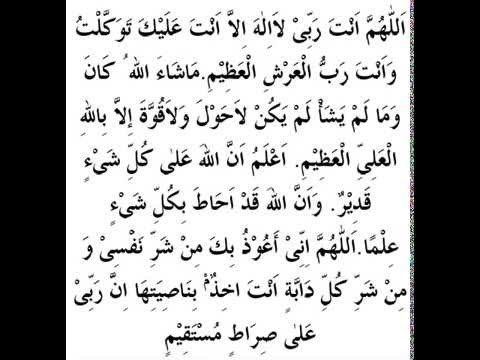 اَللّٰهُمَّ اَنْتَ رَبِّىْ لَااِلٰهَ اِلاَّ اَنْتَ عَلَيْكَ تَوَكَّلْتُ
وَاَنْتَ رَبُّ الْعَرْشِ الْعَظِيْمِ.مَاشَاءَ اللهُ كَانَ
وَمَا لَمْ يَشَأْ لَمْ يَكُنْ لاَحَوْلَ وَلاَقُوَّةَ إِلاَّ بِاللهِ
الْعَلِىِّ الْعَظِيْمِ. اَعْلَمُ اَنَّ اللهَ عَلٰى كُلِّ شَىْءٍ
قَدِيْرٌ. وَاَنَّ اللهَ قَدْ اَحَاطَ بِكُلِّ شَىْءٍ
عِلْمًا.اَللّٰهُمَّ اِنِّىْ أَعُوْذُ بِكَ مِنْ شَرِّ نَفْسِىْ وَ
مِنْ شَرِّ كُلِّ دَابَّةٍ اَنْتَ اخِذٌۢ بِنَاصِيَتِهَا اِنَّ رَبِّىْ
عَلٰى صِرَاطٍ مُسْتَقِيْمٍ